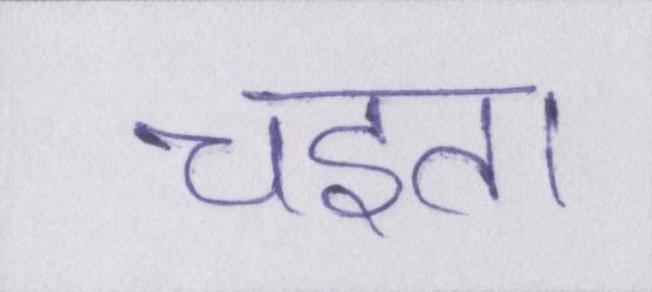 चइता